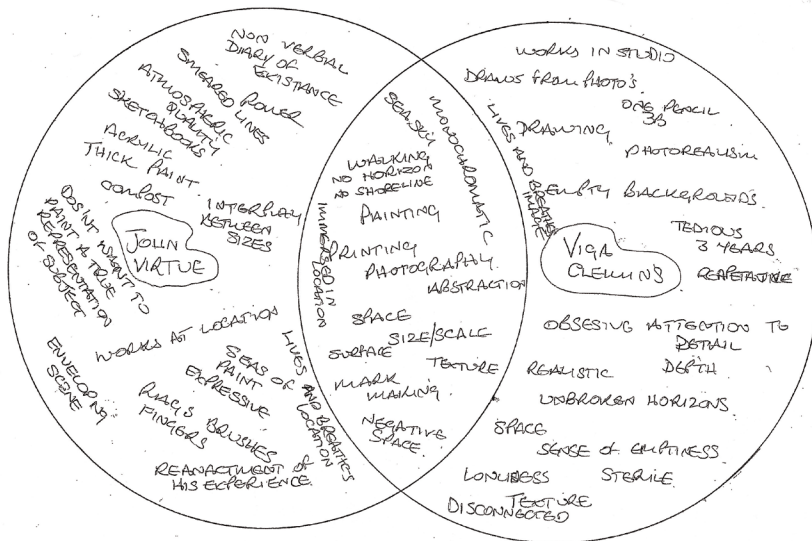 NON VERBAL
DIARY OF
EXISTANCE
SMEARED LINES
POWER
ATMOSPHERIC
QUALITY
SKETCHBOOKS
ACRYLIC
THICK PAINT
COMPOST
INTERPLAY
BETWEEN
SIZES
JOHN
VIRTUE
DOSN'T WANT TO
PAINT A TRUE
REPRESENTATION
OF SUBJECT
WORKS AT LOCATION
ENVELOPING
SCENE
SEAS OF
PAINT
EXPRESSIVE
RAGS BRUSHES
FINGERS
LIVES AND BREATHES
LOCATION
REANACTMENT of
HIS EXPERIENCE
SEA SKY
MONOCHROMATIC
WALKING
NO HORIZON
NO SHORELINE
PAINTING
IMMERSED IN
LOCATION
PRINTING
PHOTOGRAPHY
ABSTRACTION
SPACE
SIZE/SCALE
SURFACE
TEXTURE
MARK
MAKING
NEGATIVE
SPACE
WORKS IN STUDIO
DRAWS FROM PHOTO'S
ONE PENCIL
3B
LIVES AND BREATHES
IMAGE
DRAWING
PHOTOREALISM
EMPTY BACKGROUNDS
TEDIOUS
3 YEARS
REAPETATIVE
VIGA
CLEMINS
OBSESIVE ATTENTION TO
DETAIL
REALISTIC
DEPTH
UNBROKEN HORIZONS
SPACE
SENSE of EMPTINESS
LONLINESS
STERILE
TEXTURE
DISCONNECTED